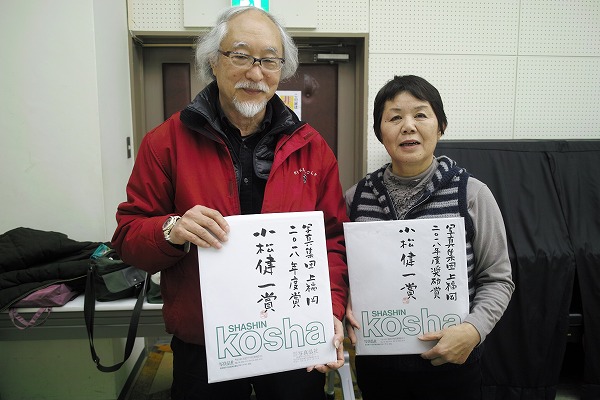 写真集団上福岡
二〇一八年度賞
小松健一賞
SHASHIN
kosha
写真集団上福岡
二〇一八年度奨励賞
小松健一賞
SHASHIN
kosha